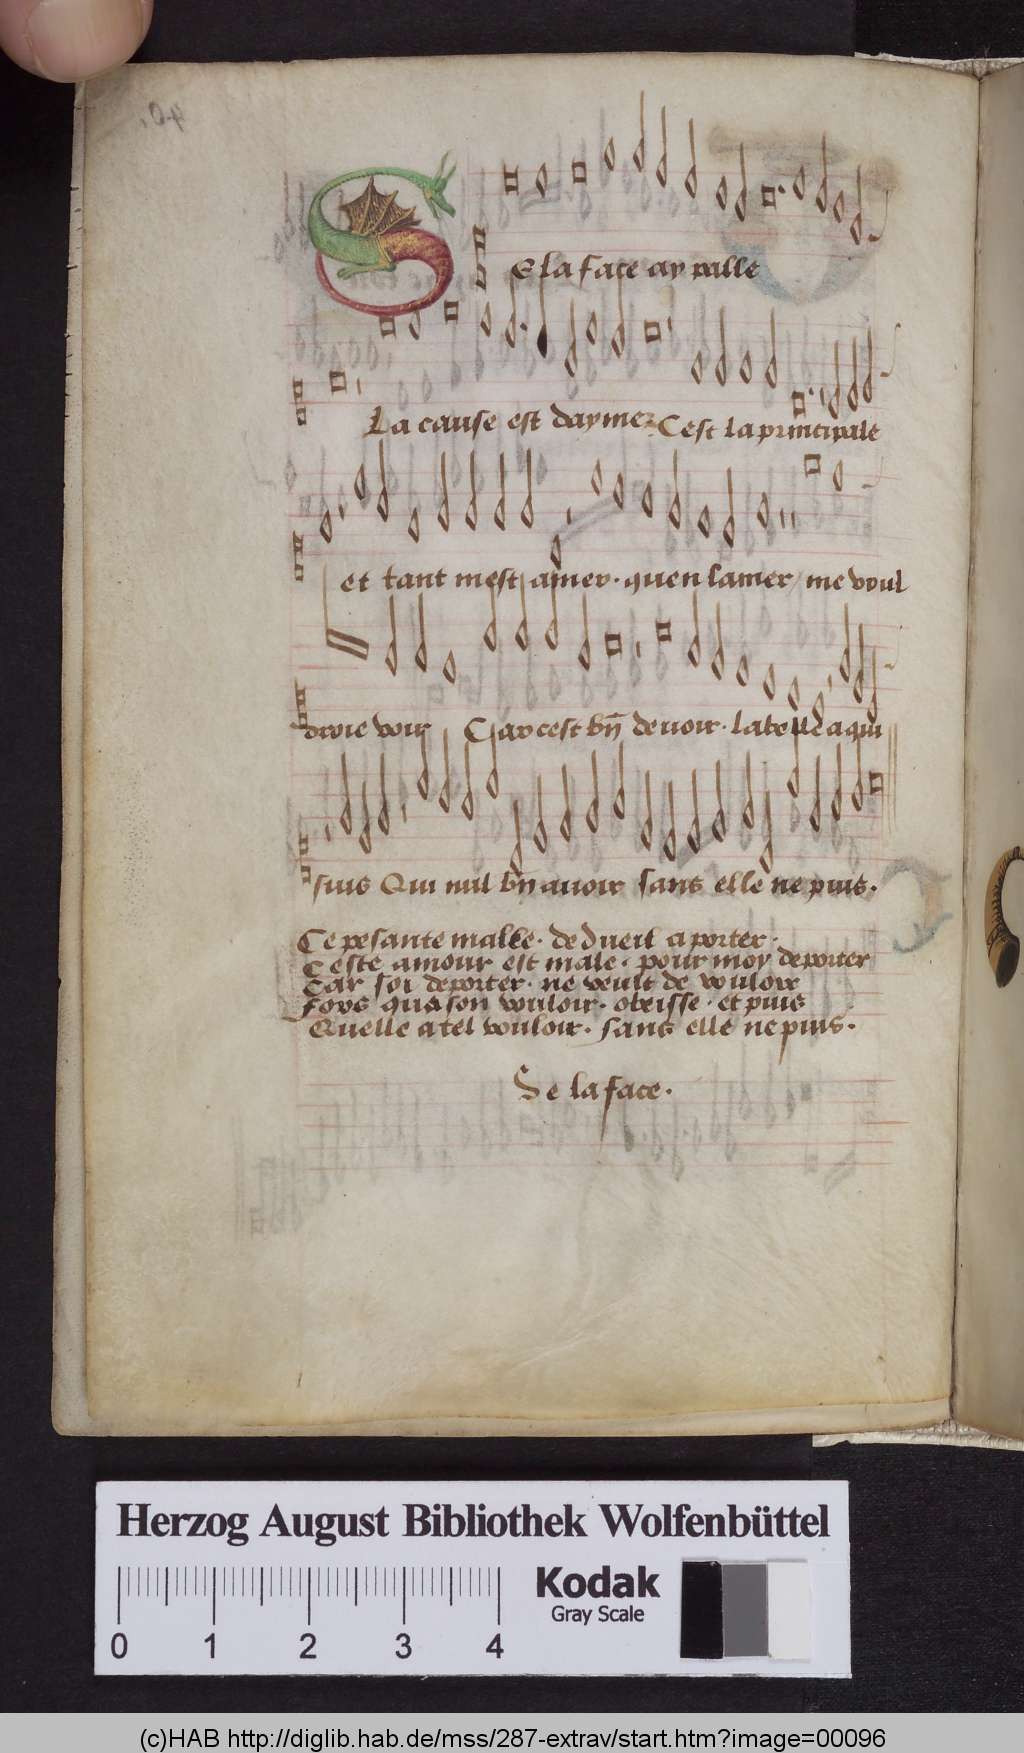 Se la face ay palle
La cause est daymer Cest la principale
et tant mest amer · quen lamer / me voul
droie voir Car cest bñ devoir · la belle a qui
suis Qui nul bñ avoir sans elle ne puis ·
Ce pesante malle · de dueil a porter ·
Ceste amour est male · pour moy deporter
Car soi deporter · ne veult de vouloir
Fors qua son vouloir · obeisse · et puis
Quelle a tel vouloir · sans elle ne puis ·
Se la face ·
Herzog August Bibliothek Wolfenbüttel
Kodak
Gray Scale
0 1 2 3 4
(c)HAB http://diglib.hab.de/mss/287-extrav/start.htm?image=00096